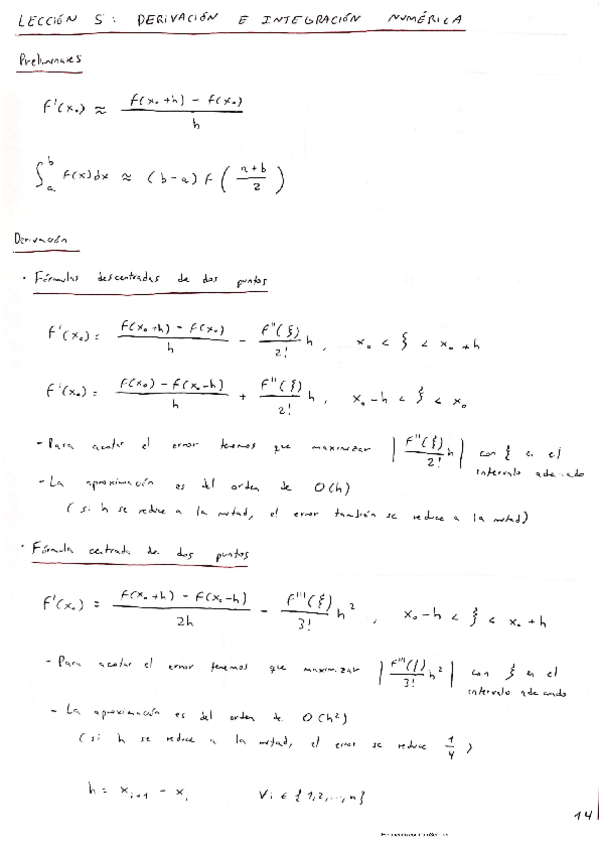 LECCIÓN 5: DERIVACIÓN E INTEGRACIÓN NUMÉRICA
Preliminares
f'(x₀) ≈ (f(x₀+h) - f(x₀)) / h
∫ₐᵇ f(x)dx ≈ (b-a) f((a+b)/2)
Derivación
· Fórmulas descentradas de dos puntos
f'(x₀) = (f(x₀+h) - f(x₀)) / h - (f''(ξ) / 2!) h , x₀ < ξ < x₀+h
f'(x₀) = (f(x₀) - f(x₀-h)) / h + (f''(ξ) / 2!) h , x₀-h < ξ < x₀
- Para acotar el error tenemos que maximizar |(f''(ξ) / 2!) h| con ξ en el
intervalo adecuado
- La aproximación es del orden de O(h)
(si h se reduce a la mitad, el error también se reduce a la mitad)
· Fórmula centrada de dos puntos
f'(x₀) = (f(x₀+h) - f(x₀-h)) / 2h - (f'''(ξ) / 3!) h² , x₀-h < ξ < x₀+h
- Para acotar el error tenemos que maximizar |(f'''(ξ) / 3!) h²| con ξ en el
intervalo adecuado
- La aproximación es del orden de O(h²)
(si h se reduce a la mitad, el error se reduce 1/4)
h = xᵢ₊₁ - xᵢ ∀i ∈ {1,2,...,n}
14